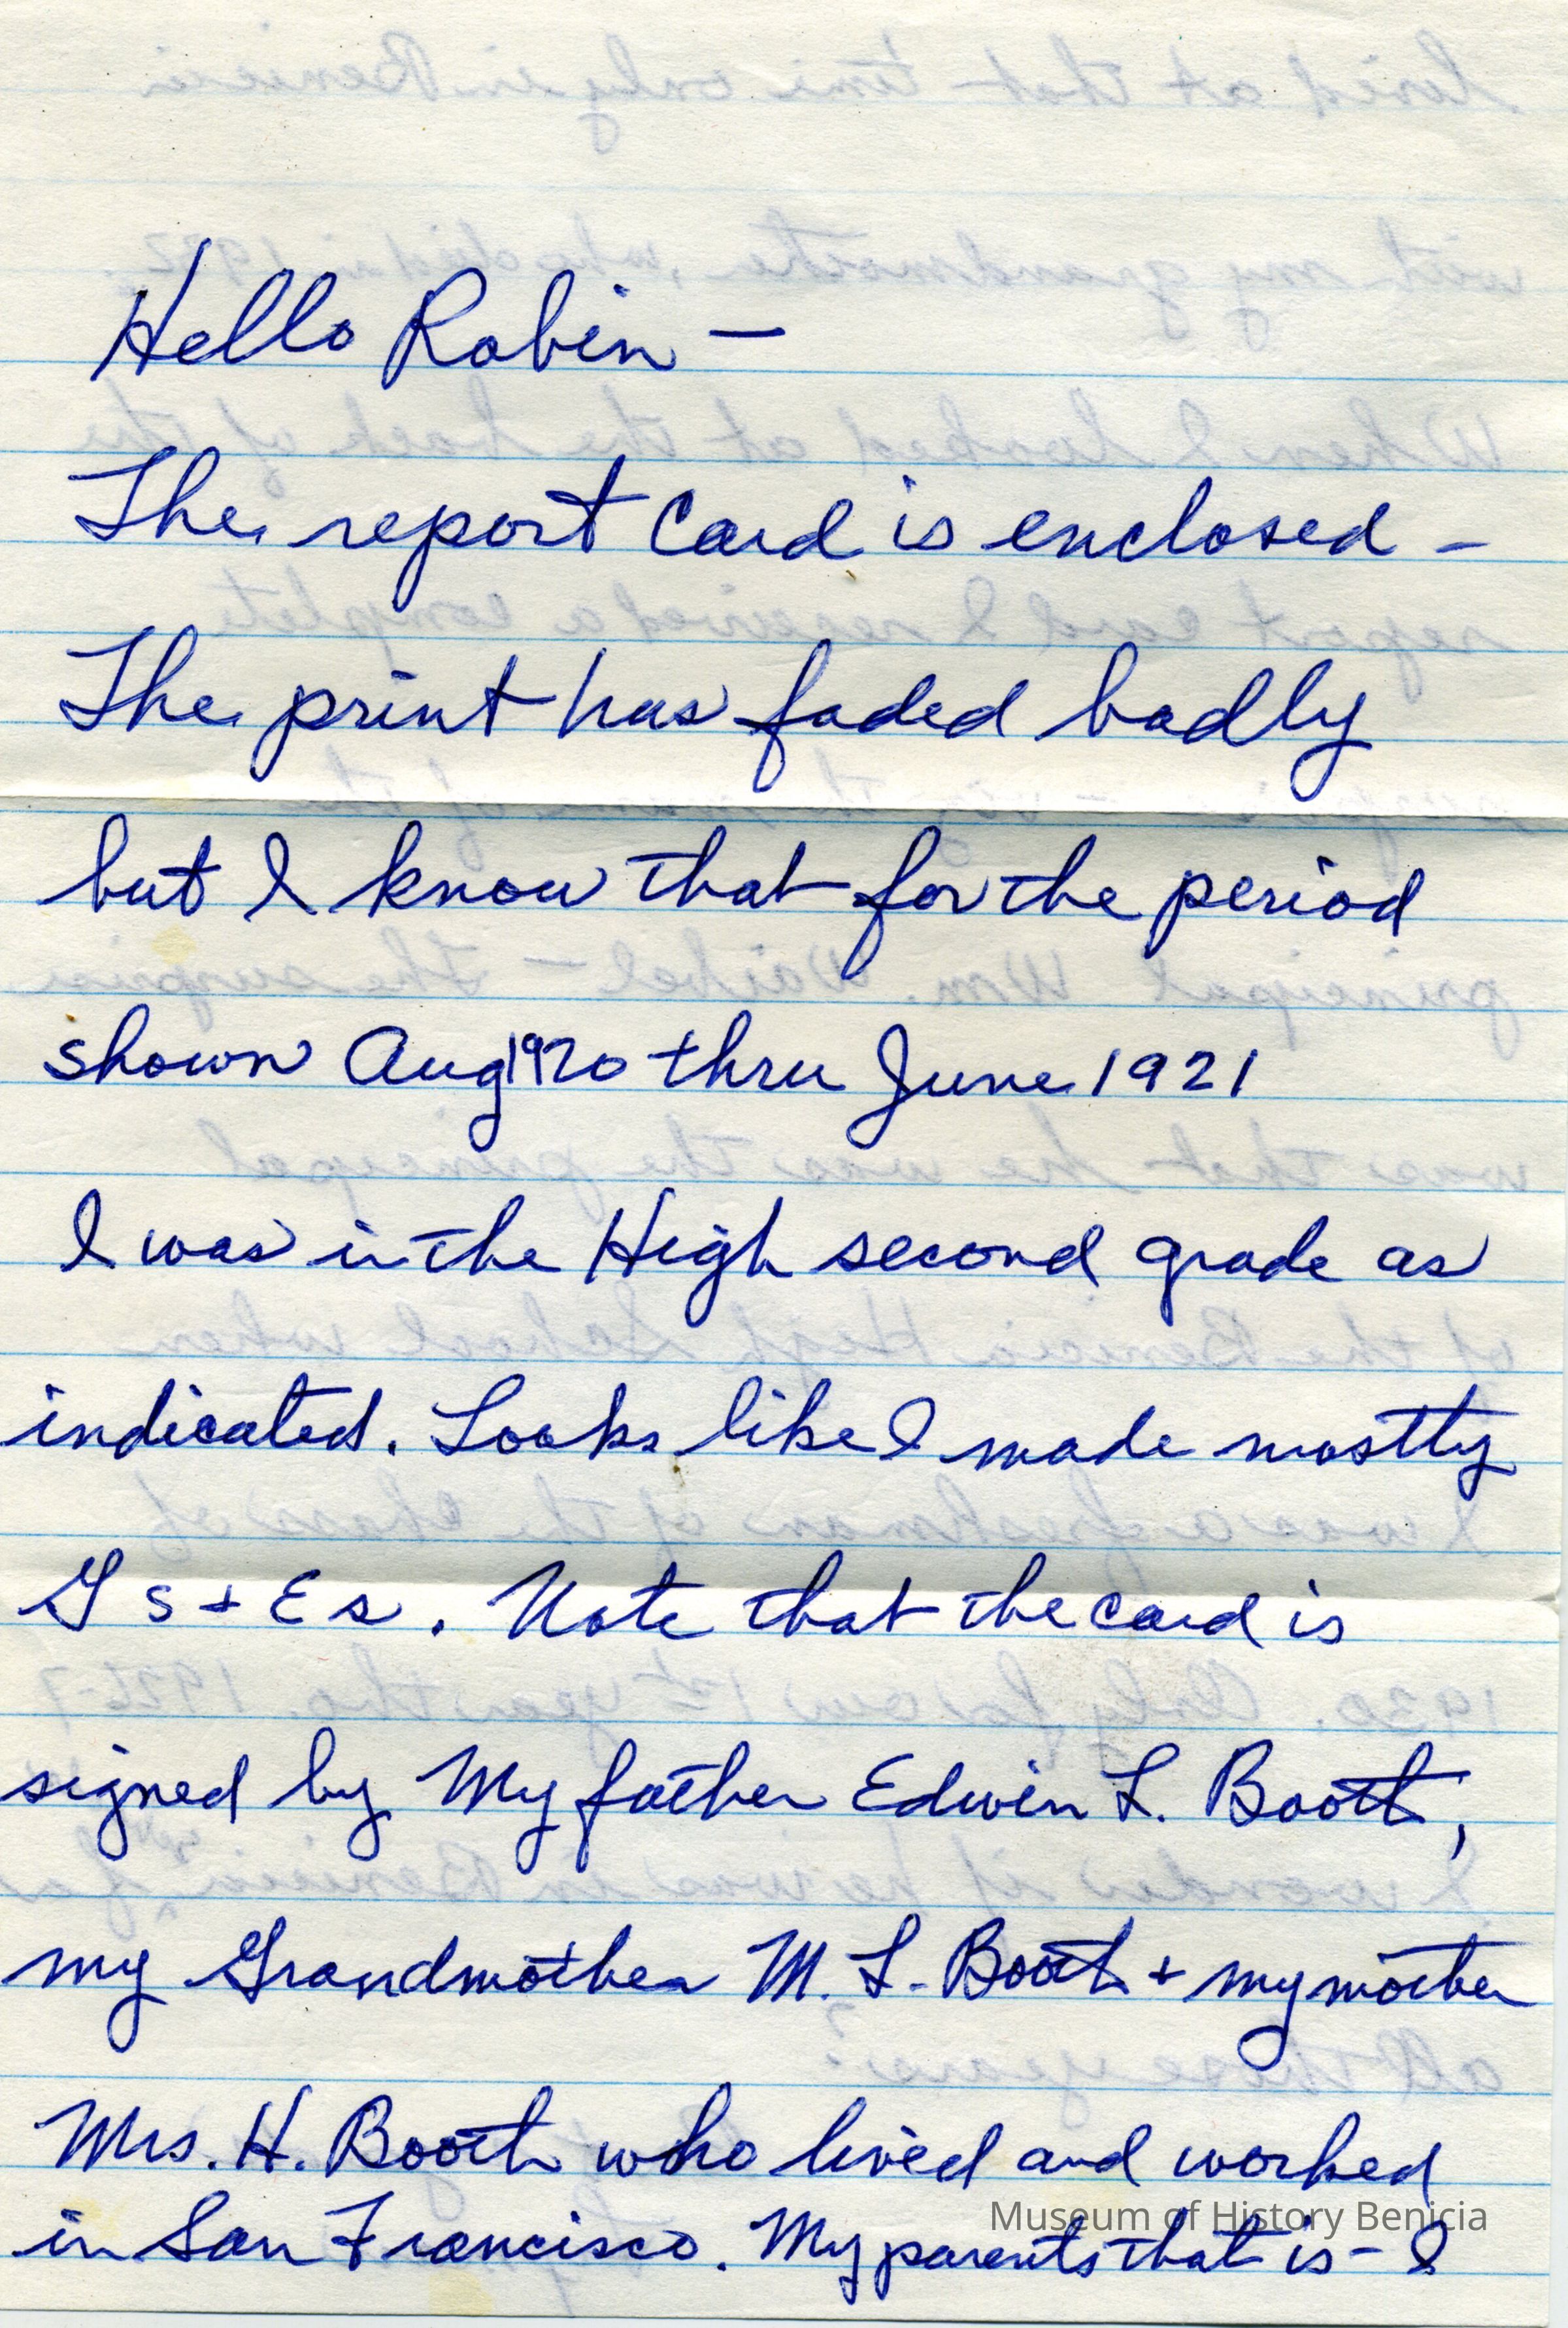 Hello Robin —
The report card is enclosed –
The print has faded badly
but I know that for the period
shown Aug 1920 thru June 1921
I was in the High second grade as
indicated. Looks like I made mostly
G s + E s. Note that the card is
signed by My father Edwin L. Booth,
my Grandmother M. L. Booth + my mother
Mrs. H. Booth who lived and worked
in San Francisco. My parents that is – I
Museum of History Benicia